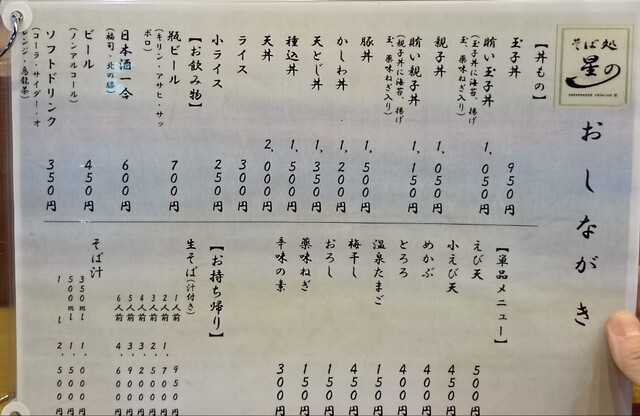 そば処
星の
おしながき
【丼もの】
玉子丼 950円
賄い玉子丼 1,050円
(玉子丼に海苔、揚げ
玉、薬味ねぎ入り)
親子丼 1,050円
賄い親子丼 1,150円
(親子丼に海苔、揚げ
玉、薬味ねぎ入り)
豚丼 1,500円
かしわ丼 1,200円
天とじ丼 1,350円
種込丼 1,500円
天丼 2,000円
ライス 300円
小ライス 250円
【お飲み物】
瓶ビール 700円
(キリン・アサヒ・サッ
ポロ)
日本酒一合 600円
(福司・北の勝)
ビール 450円
(ノンアルコール)
ソフトドリンク 350円
(コーラ・サイダー・オ
レンジ・烏龍茶)
【単品メニュー】
えび天 500円
小えび天 450円
めかぶ 400円
とろろ 400円
温泉たまご 150円
梅干し 450円
おろし 150円
薬味ねぎ 150円
辛味の素 300円
【お持ち帰り】
生そば(汁付き)
1人前 950円
2人前 1,700円
3人前 2,500円
4人前 3,200円
5人前 3,900円
6人前 4,600円
そば汁
350ml 1,000円
500ml 1,500円
1l 2,500円